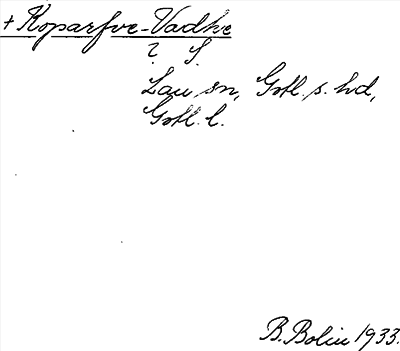 + Koparfve-Vadhe
? S.
Lau sn, Gotl. s. hd,
Gotl. l.
B. Bolin 1933.